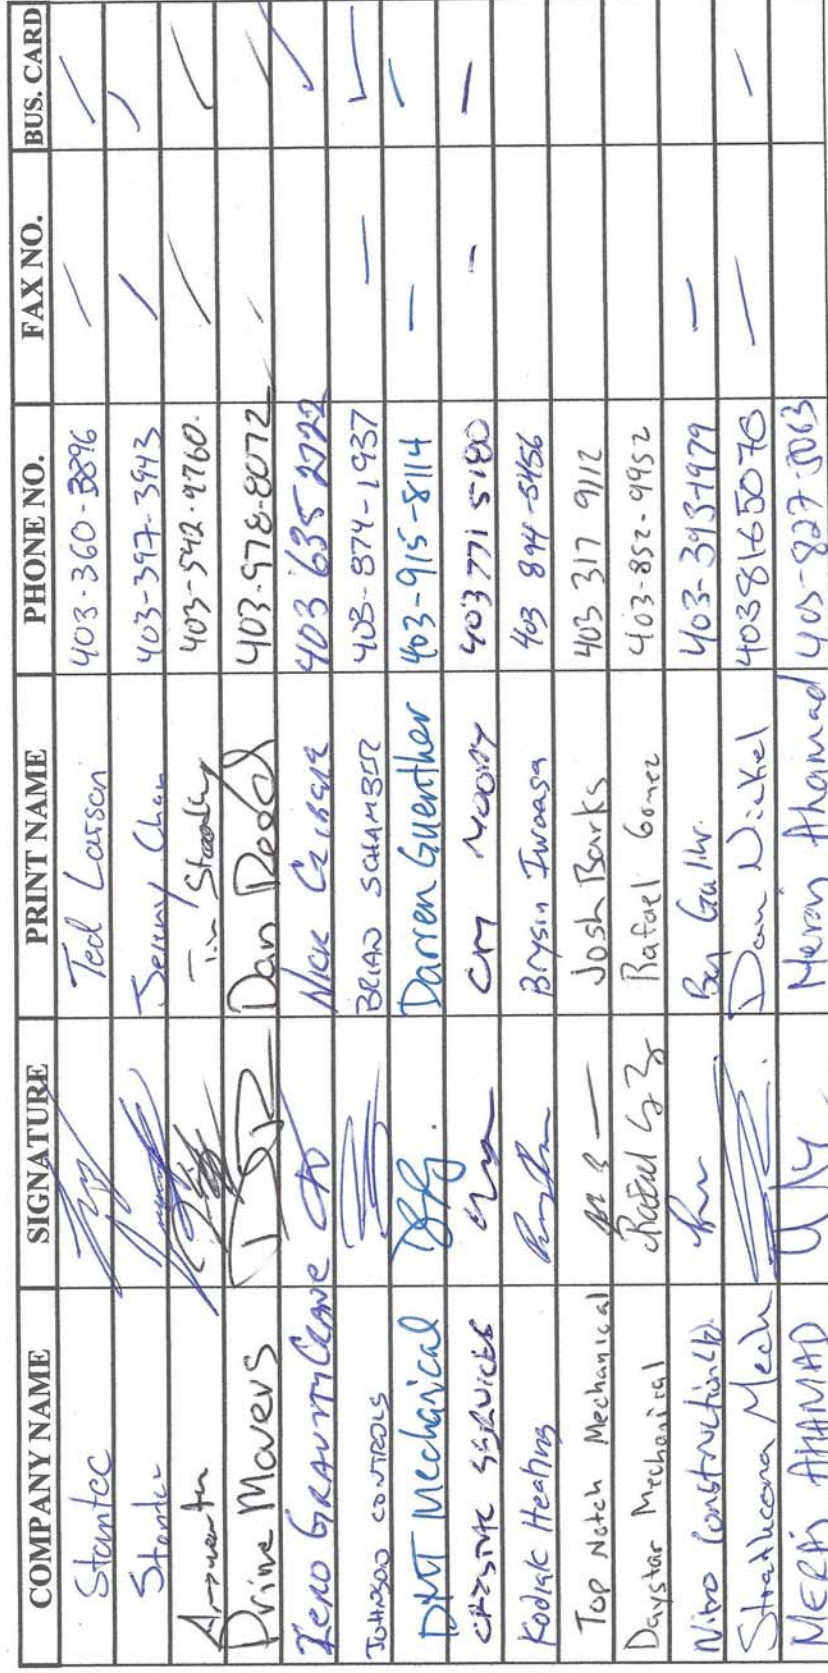 COMPANY NAME SIGNATURE PRINT NAME PHONE NO. FAX NO. BUS. CARD
Stantec Ted Larson 403-360-3896 — —
Stantec Jeremy Chan 403-397-3943 — —
Tim 403-542-9760. — —
Prime Movers Dan 403-978-8072 — —
Zero GRAVITY CRANE Nick 403 635 2722 ✓
JOHNSON CONTROLS BRIAN SCHAMBER 403-874-1937 — ✓
DMT Mechanical Darren Guenther 403-915-8114 — —
SERVICES MOODY 403 771 5180 — —
Kodiak Heating Bryson Iwaasa 403 894-5456
Top Notch Mechanical Josh Barks 403 317 9112
Daystar Mechanical Rafael Rafael Gomez 403-852-9952
Nitro Construction Ltd. 403-393-1979 —
Strathcona Mech Dan Nickel 4038165070 — —
MERAJ AHAMAD Meraj Ahamad